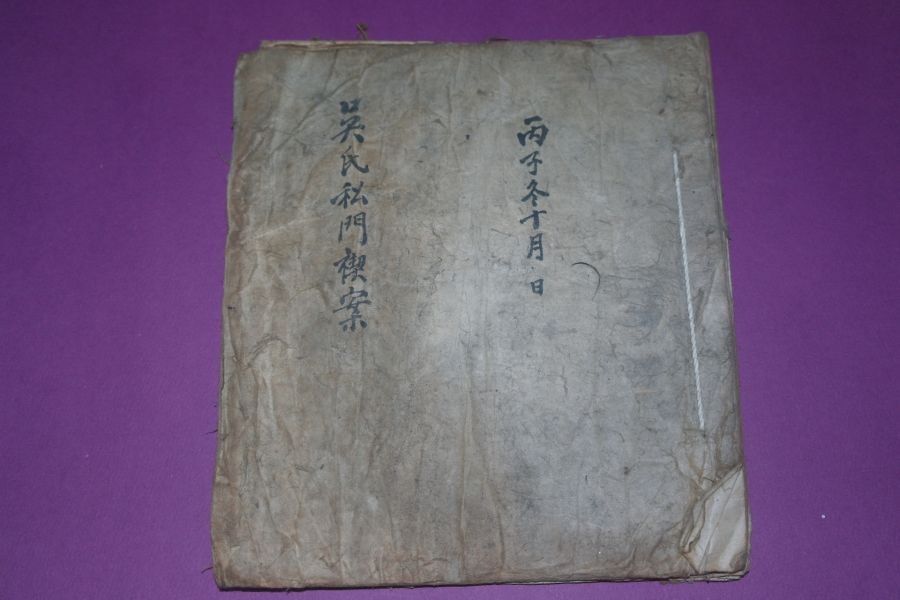 丙子冬十月 日
吳氏私門稧案